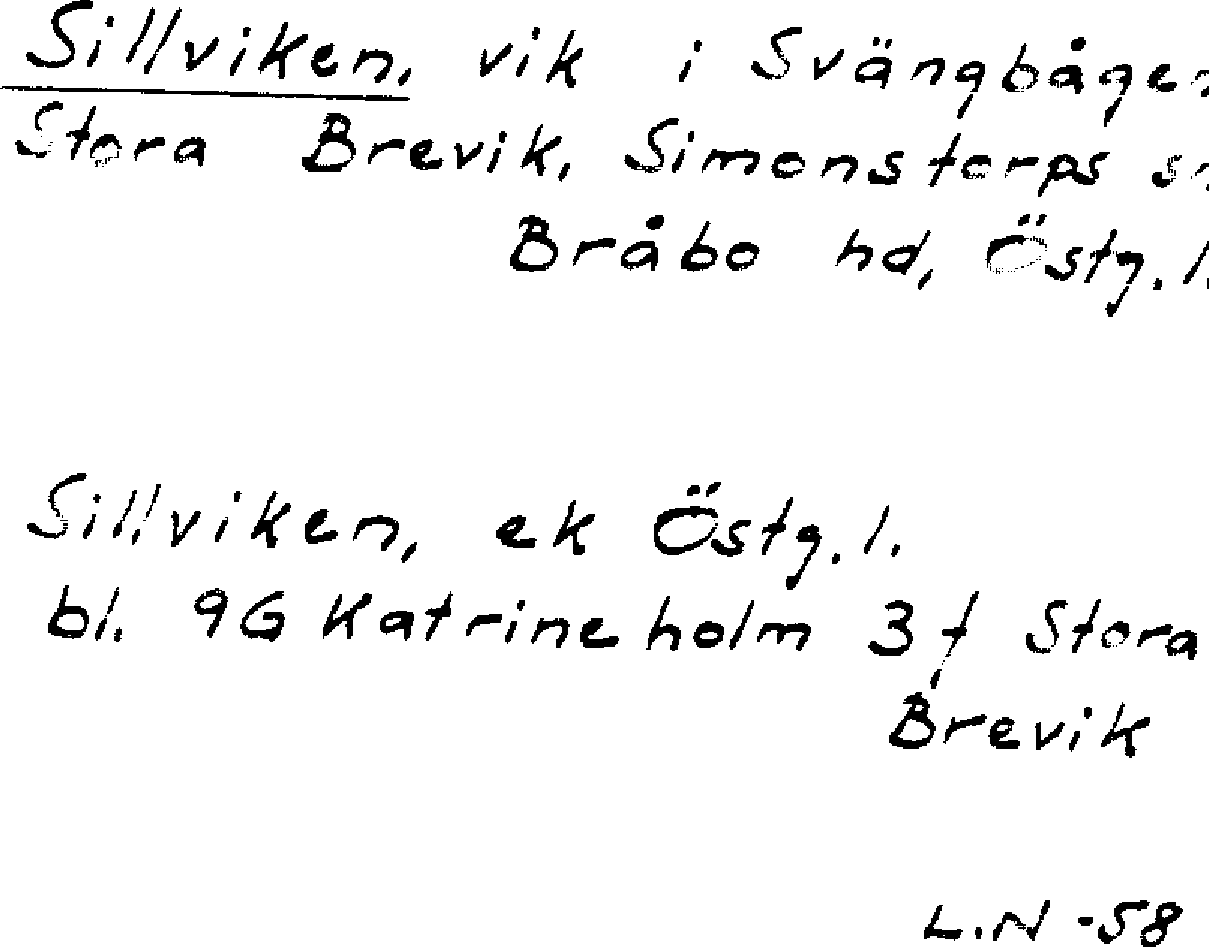 Sillviken, vik i Svängbågen
Stora Brevik, Simonstorps sn
Bråbo hd, Östg. l.
Sillviken, ek Östg. l.
bl. 9G Katrineholm 3f Stora
Brevik
L.N -58